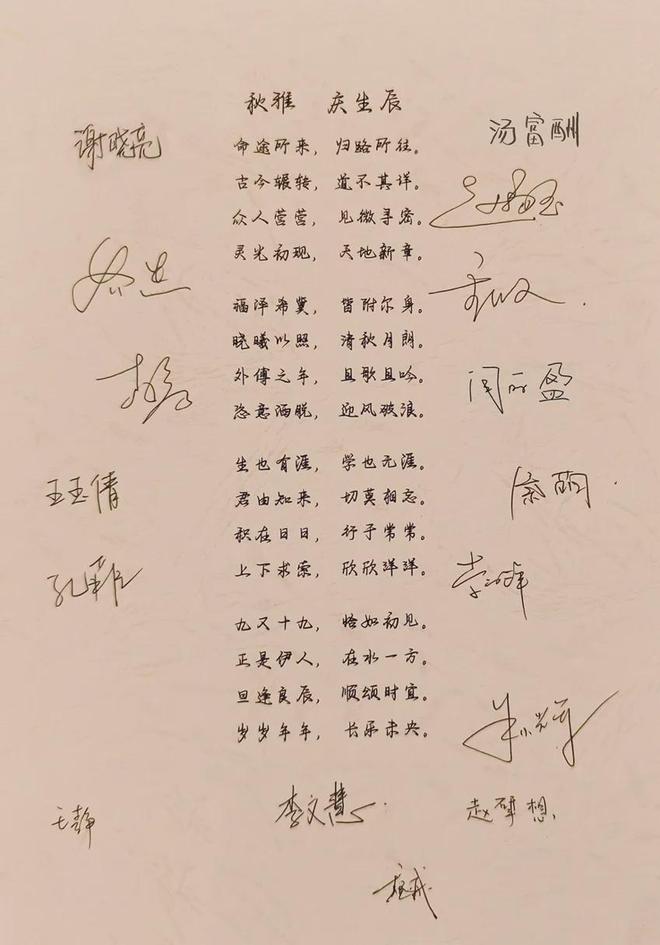 秋雅 庆生辰
谢晓亮
汤富酬
命途所来， 归路所往。
古今辗转， 道不其详。
众人营营， 见微寻密。
灵光初现， 天地新章。
福泽希冀， 皆附尔身。
晓曦以照， 清秋月朗。
外傅之年， 且歌且吟。
恣意洒脱， 迎风破浪。
闫丽盈
生也有涯， 学也无涯。
王玉倩
君由知来， 切莫相忘。
积在日日， 行于常常。
上下求索， 欣欣洋洋。
九又十九， 恪如初见。
正是伊人， 在水一方。
旦逢良辰， 顺颂时宜。
岁岁年年， 长乐未央。
王静
李文慧